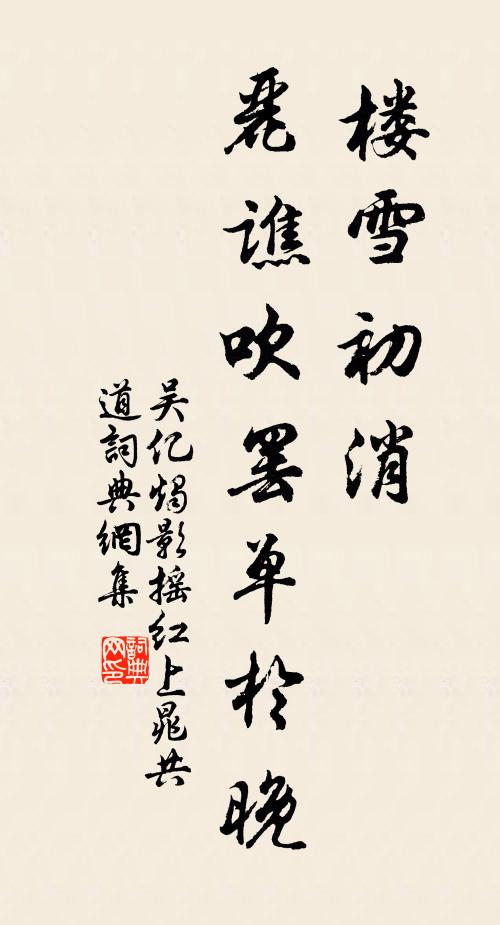 楼雪初消
丽谯吹罢单于晚
吴亿烛影摇红上晁共
道詞典網集
詞典网印